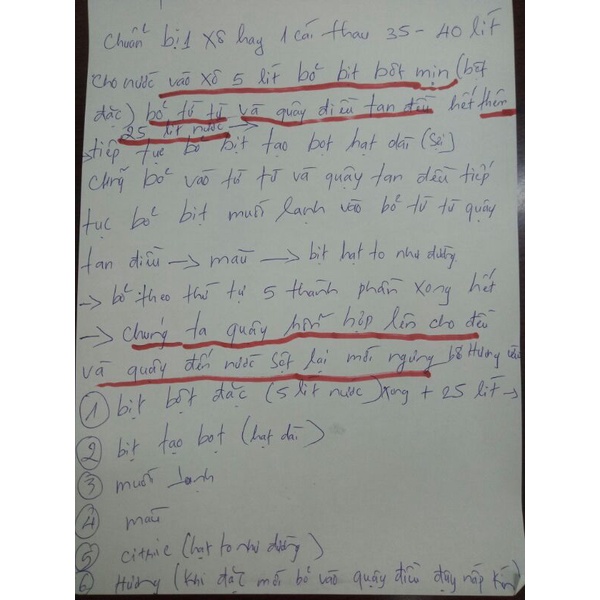 Chuẩn bị 1 xô hay 1 cái thau 35 - 40 lít
cho nước vào xô 5 lít bỏ bịt bột mịn (bột
đặc) bỏ từ từ và quậy điều tan đều hết thêm
25 lít nước →
→ tiếp tục bỏ bịt tạo bọt hạt dài (Sởi)
cũng bỏ vào từ từ và quậy tan đều tiếp
tục bỏ bịt muối lạnh vào bỏ từ từ quậy
tan điều → màu → bịt hạt to như đường
→ bỏ theo thứ tự 5 thành phần xong hết
→ chúng ta quậy hỗn hợp lên cho đều
và quậy đến nước sệt lại mới ngưng bỏ Hương vào
1 bịt bột đặc (5 lít nước) xong + 25 lít →
2 bịt tạo bọt (hạt dài)
3 muối lạnh
4 màu
5 citric (hạt to như đường)
6 Hương (Khi đặc mới bỏ vào quậy điều đậy nắp kín)